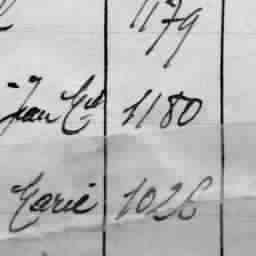 1179
Jean Ed 1180
Marie 1026